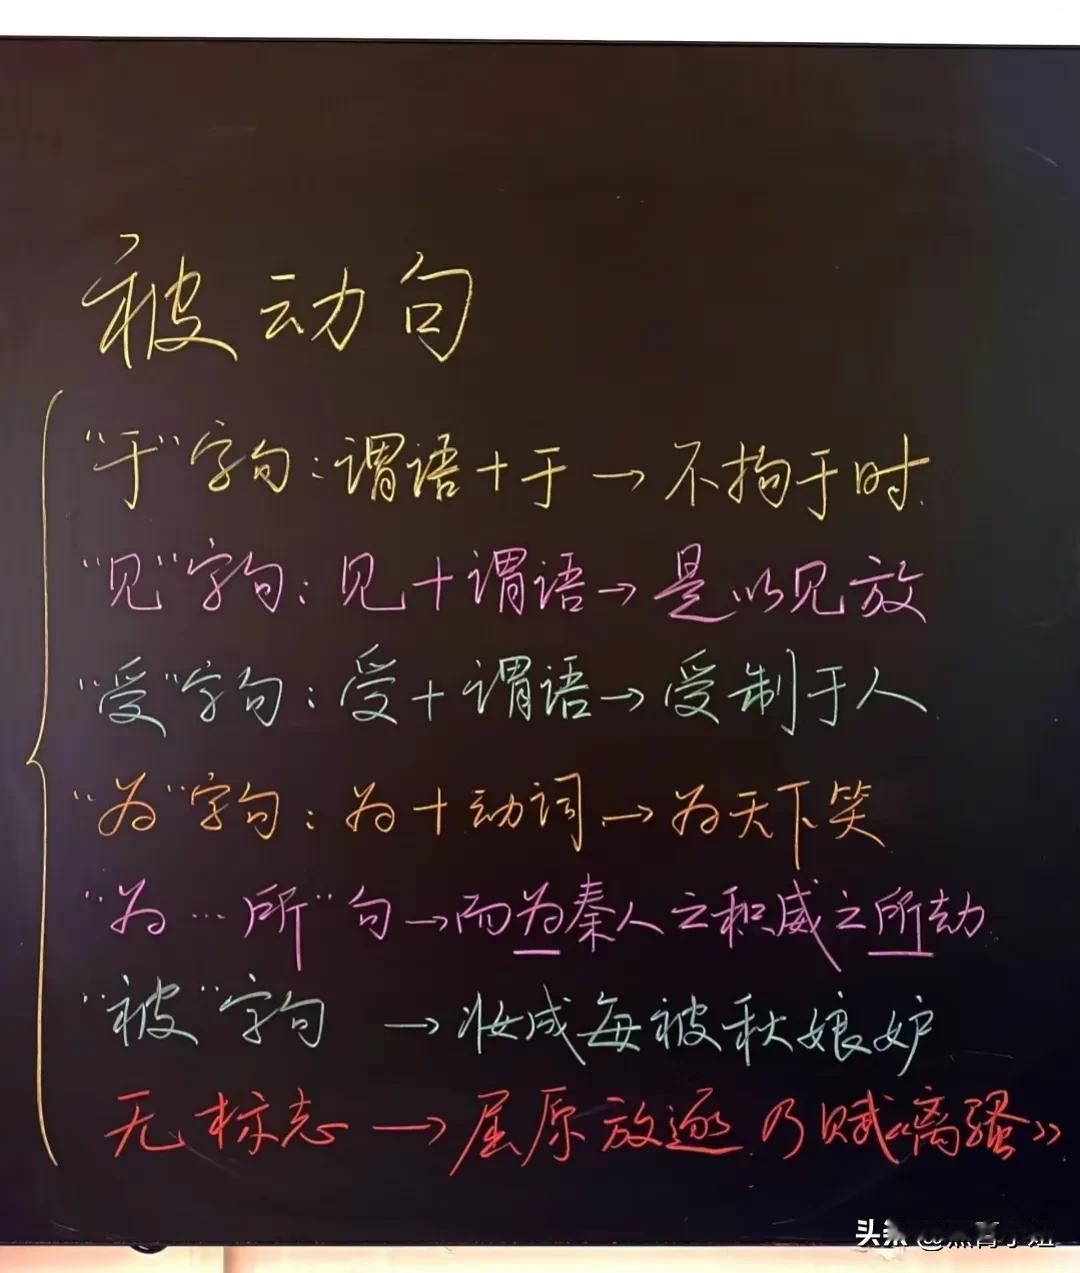 被动句
“于”字句：谓语＋于→不拘于时
“见”字句：见＋谓语→是以见放
“受”字句：受＋谓语→受制于人
“为”字句：为＋动词→为天下笑
“为…所”句→而为秦人之积威之所劫
“被”字句→妆成每被秋娘妒
无标志→屈原放逐乃赋《离骚》
头条